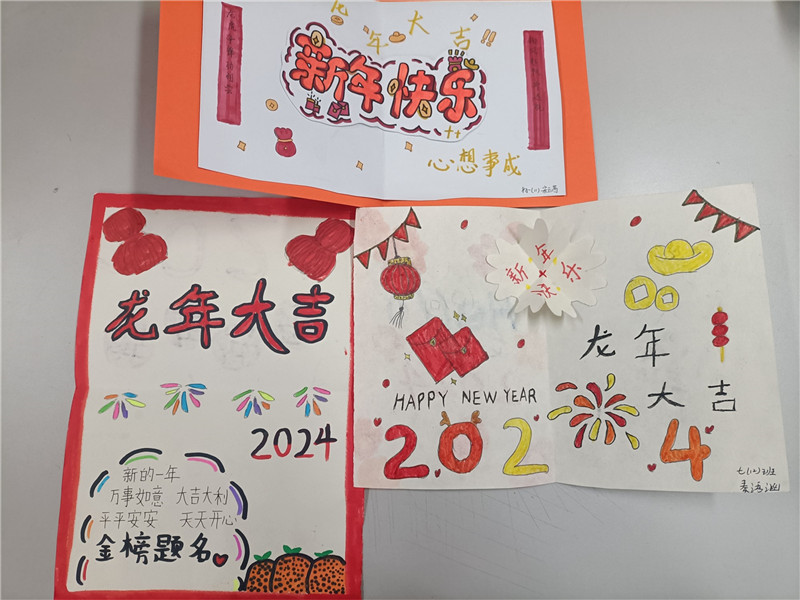 龙年大吉!!
新年快乐
心想事成
龙年大吉
2024
新的一年
万事如意 大吉大利
平平安安 天天开心
金榜题名
新年
快乐
HAPPY NEW YEAR
2024
龙年
大吉
七(12)班